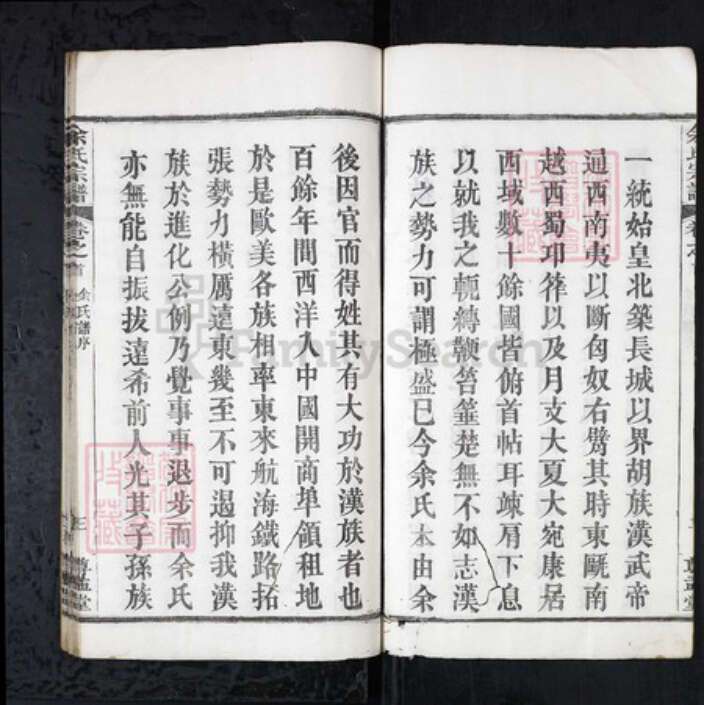 一統始皇北築長城以界胡族漢武帝
通西南夷以斷匈奴右臂其時東甌南
越西蜀邛筰以及月支大夏大宛康居
西域數十餘國皆俯首帖耳竦肩下息
以就我之軛縛鞭笞箠楚無不如志漢
族之勢力可謂極盛已今余氏本由余
後因官而得姓其有大功於漢族者也
百餘年間西洋入中國開商埠領租地
於是歐美各族相率東來航海鐵路拓
張勢力橫厲遠東幾至不可遏抑我漢
族於進化公例乃覺事事退步而余氏
亦無能自振拔遠希前人光其子孫族
余氏宗譜
卷之首
余氏譜序
三
尊孟堂
FamilySearch